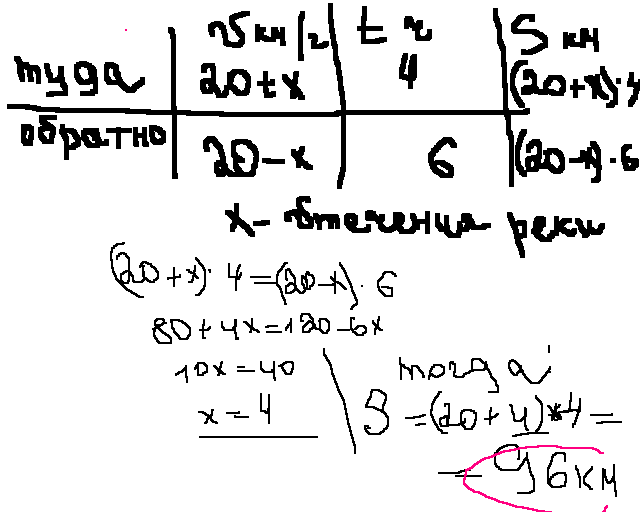 v км/ч t ч S км
туда 20+x 4 (20+x)·4
обратно 20-x 6 (20-x)·6
x - v течения реки
(20+x)·4=(20-x)·6
80+4x=120-6x
10x=40
x=4
тогда
S=(20+4)*4=
=96км